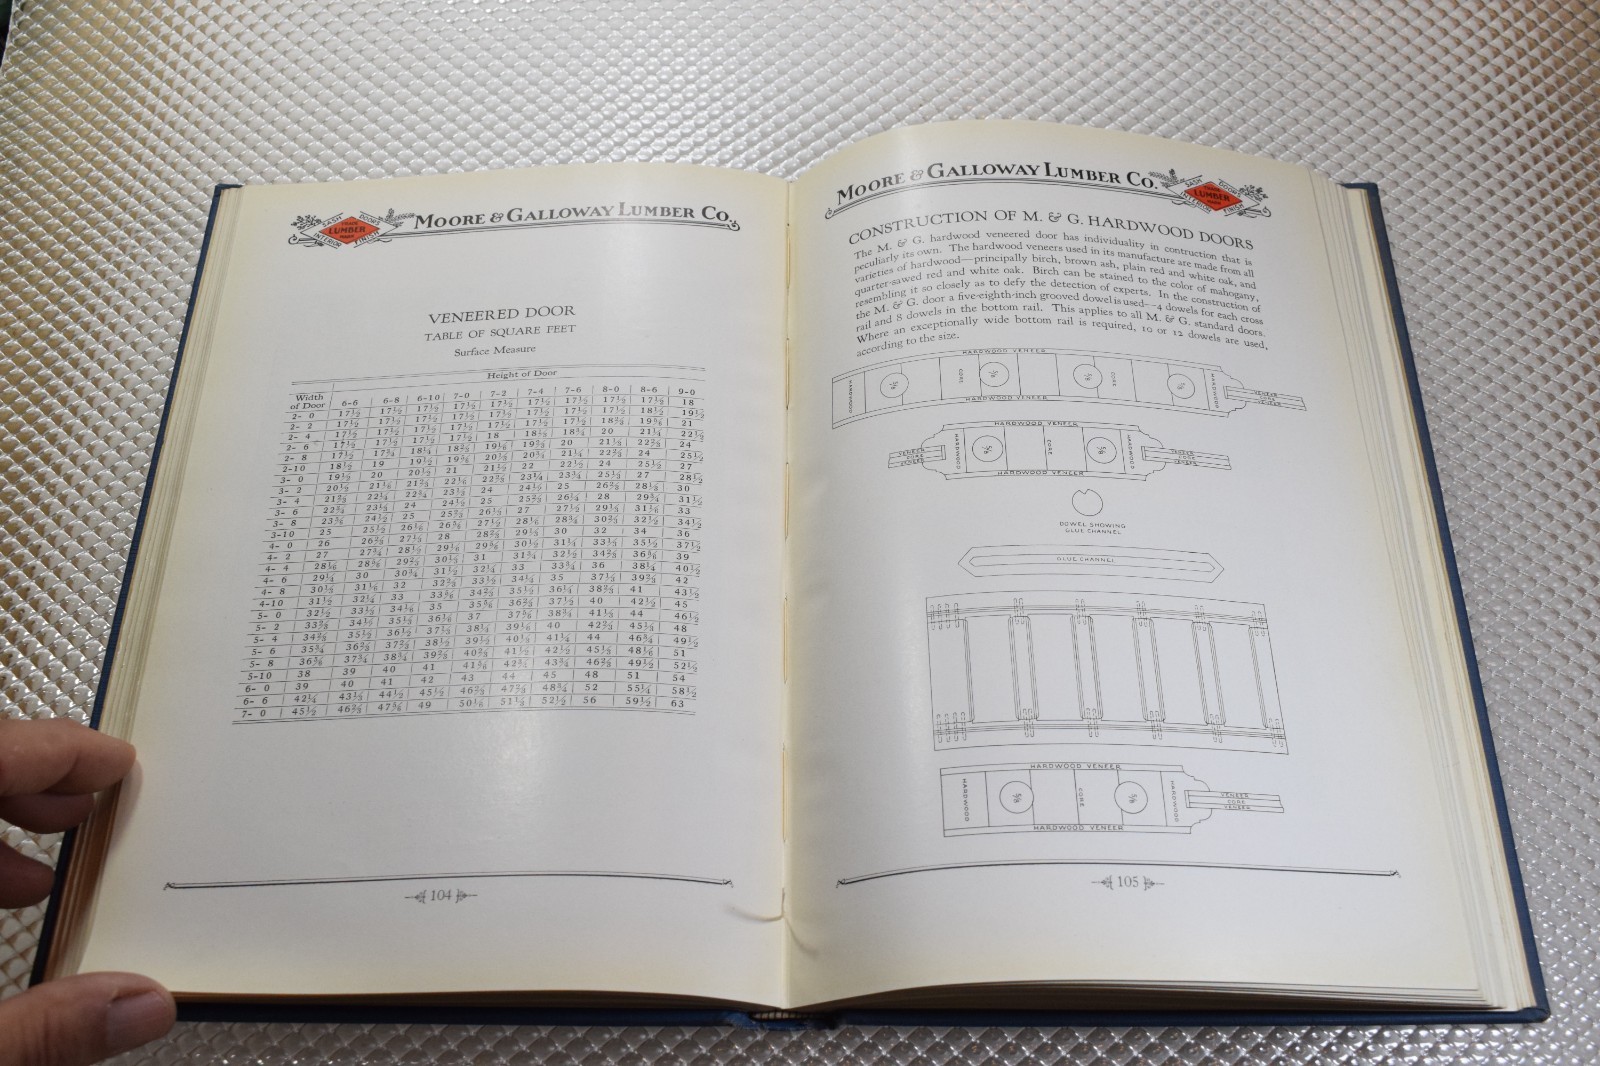 MOORE & GALLOWAY LUMBER CO.
SASH DOORS
TRADE
LUMBER
MARK
INTERIOR FINISH
VENEERED DOOR
TABLE OF SQUARE FEET
Surface Measure
Height of Door
Width of Door 6-6 6-8 6-10 7-0 7-2 7-4 7-6 8-0 8-6 9-0
2- 0 17½ 17½ 17½ 17½ 17½ 17½ 17½ 17½ 17½ 18
2- 2 17½ 17½ 17½ 17½ 17½ 17½ 17½ 17½ 18½ 19½
2- 4 17½ 17½ 17½ 17½ 17½ 17½ 17½ 18⅔ 19⅚ 21
2- 6 17½ 17½ 17½ 17½ 18 18⅓ 18¾ 20 21¼ 22½
2- 8 17½ 17¾ 18¼ 18⅔ 19⅙ 19⅔ 20 21⅓ 22⅔ 24
2-10 18½ 19 19½ 19⅚ 20⅓ 20¾ 21¼ 22⅔ 24 25½
3- 0 19½ 20 20½ 21 21½ 22 22½ 24 25½ 27
3- 2 20½ 21⅙ 21⅔ 22⅙ 22⅔ 23¼ 23¾ 25⅓ 27 28½
3- 4 21⅔ 22¼ 22¾ 23⅓ 24 24½ 25 26⅔ 28⅓ 30
3- 6 22¾ 23⅓ 24 24½ 25 25⅔ 26¼ 28 29¾ 31½
3- 8 23⅚ 24½ 25 25⅔ 26⅓ 27 27½ 29⅓ 31⅙ 33
3-10 25 25½ 26⅙ 26⅚ 27½ 28⅙ 28¾ 30⅔ 32½ 34½
4- 0 26 26⅔ 27⅓ 28 28⅔ 29⅓ 30 32 34 36
4- 2 27 27¾ 28½ 29⅙ 29⅚ 30½ 31¼ 33⅓ 35½ 37½
4- 4 28⅙ 28⅚ 29⅔ 30⅓ 31 31¾ 32½ 34⅔ 36⅚ 39
4- 6 29¼ 30 30¾ 31½ 32¼ 33 33¾ 36 38¼ 40½
4- 8 30⅓ 31⅙ 32 32⅔ 33½ 34¼ 35 37⅓ 39⅔ 42
4-10 31½ 32¼ 33 33⅚ 34⅔ 35½ 36¼ 38⅔ 41 43½
5- 0 32½ 33⅓ 34⅙ 35 35⅚ 36⅔ 37½ 40 42½ 45
5- 2 33⅔ 34½ 35⅓ 36⅙ 37 37⅚ 38¾ 41⅓ 44 46½
5- 4 34⅔ 35½ 36½ 37⅓ 38¼ 39⅙ 40 42⅔ 45⅓ 48
5- 6 35¾ 36⅔ 37⅔ 38½ 39½ 40⅓ 41¼ 44 46¾ 49½
5- 8 36⅚ 37¾ 38¾ 39⅔ 40⅔ 41½ 42½ 45⅓ 48⅙ 51
5-10 38 39 40 41 41⅚ 42¾ 43¾ 46⅔ 49½ 52½
6- 0 39 40 41 42 43 44 45 48 51 54
6- 6 42¼ 43⅓ 44½ 45½ 46⅔ 47⅔ 48¾ 52 55¼ 58½
7- 0 45½ 46⅔ 47⅚ 49 50⅙ 51⅓ 52½ 56 59½ 63
104
MOORE & GALLOWAY LUMBER CO.
SASH DOORS
TRADE
LUMBER
MARK
INTERIOR FINISH
CONSTRUCTION OF M. & G. HARDWOOD DOORS
The M. & G. hardwood veneered door has individuality in contruction that is
peculiarly its own. The hardwood veneers used in its manufacture are made from all
varieties of hardwood—principally birch, brown ash, plain red and white oak, and
quarter-sawed red and white oak. Birch can be stained to the color of mahogany,
resembling it so closely as to defy the detection of experts. In the construction of
the M. & G. door a five-eighth-inch grooved dowel is used--4 dowels for each cross
rail and 8 dowels in the bottom rail. This applies to all M. & G. standard doors.
Where an exceptionally wide bottom rail is required, 10 or 12 dowels are used,
according to the size.
HARDWOOD VENEER
HARDWOOD ⅝ CORE ⅝ ⅝ CORE ⅝ HARDWOOD
VENEER
CORE
VENEER
HARDWOOD VENEER
HARDWOOD VENEER
VENEER
CORE
VENEER
HARDWOOD ⅝ CORE ⅝ HARDWOOD
VENEER
CORE
VENEER
HARDWOOD VENEER
DOWEL SHOWING
GLUE CHANNEL
GLUE CHANNEL
HARDWOOD VENEER
HARDWOOD ⅝ CORE ⅝ HARDWOOD
VENEER
CORE
VENEER
HARDWOOD VENEER
105